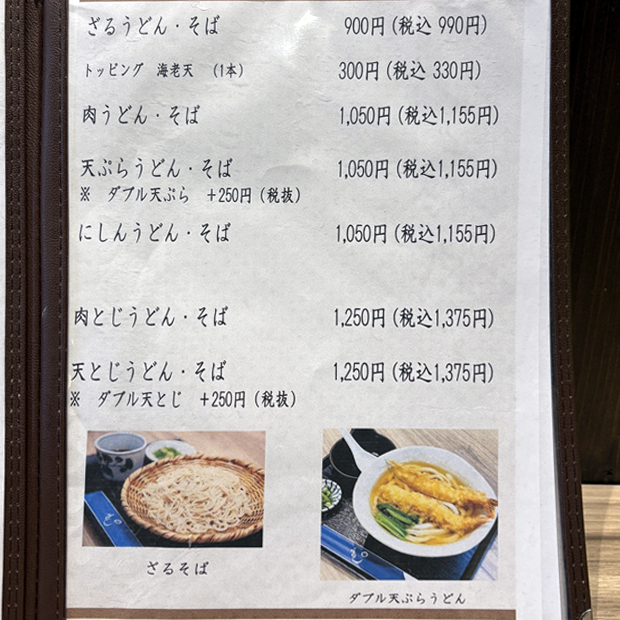 ざるうどん・そば　900円（税込 990円）
トッピング　海老天　（1本）　300円（税込 330円）
肉うどん・そば　1,050円（税込1,155円）
天ぷらうどん・そば　1,050円（税込1,155円）
※　ダブル天ぷら　＋250円（税抜）
にしんうどん・そば　1,050円（税込1,155円）
肉とじうどん・そば　1,250円（税込1,375円）
天とじうどん・そば　1,250円（税込1,375円）
※　ダブル天とじ　＋250円（税抜）
ざるそば
ダブル天ぷらうどん